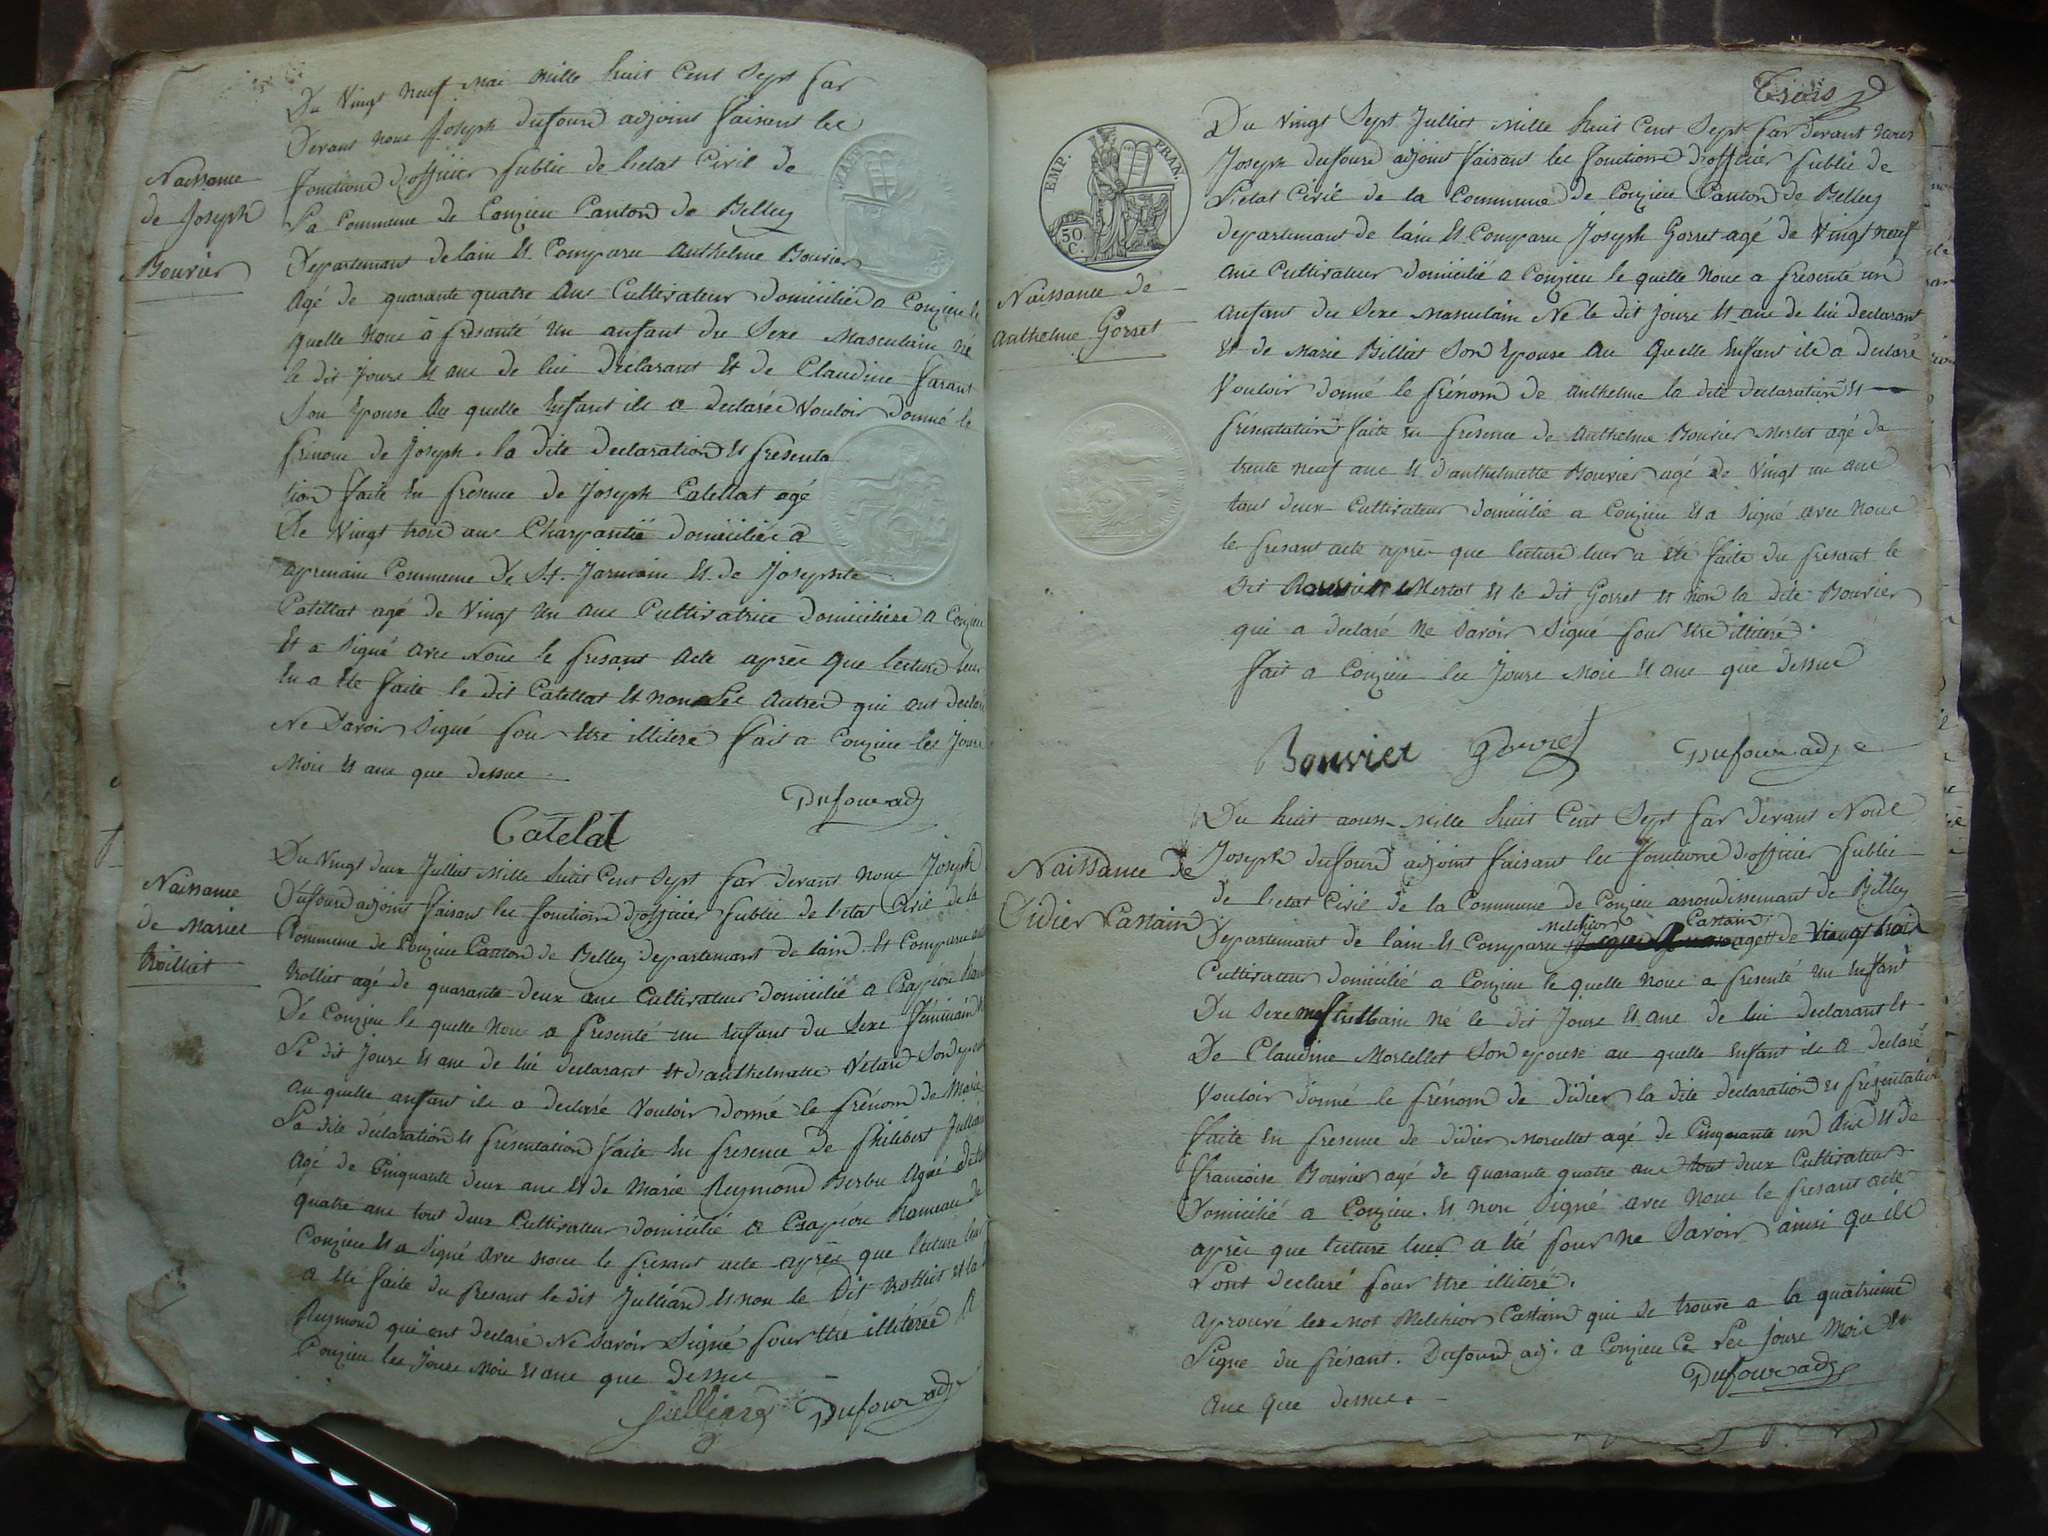 Du Vingt neuf mai mille huit Cent Sept par
Devant nous Joseph dufourd adjoint faisent les
fonctiond d'officier public de l'etat Civil de
La Commune de Conzieu Canton de Belley
Departemant de lain Et Comparu Anthelme Bouvier
Naissance
de Joseph
Bouvier
Agé de quarante quatre Ans Cultivateur domicilié a Conzieu le
quelle nous à presanté un anfant du Sexe Masculain né
le dit Jours et ans de lui Déclarant Et de Claudine
Son Epouse Au quelle Enfant ils a declarée Vouloir donné le
prénom de Joseph. la dite declaration et presenta
tion faite En presence de Joseph Catellat agé
De Vingt trois ans Charpantié domiciliée a
apremain Commune De St. Jarmain Et de Josephte
Catellat agé de Vingt un ans Cultivatrice domiciliere a Conzieu
Et a signé avec Nous le presant acte aprés que lecture leur
En a Eté faite le dit Catellat et non Les autres qui ont declaré
Ne Savoir Signé pour Etre illitere fait a Conzieu les Jours
Mois et ans que dessus
Dufour adj
Catelat
Naissance
de Mariee
Roillat
Du Vingt deux Julliet Mille huit Cent Sept par devant nous Joseph
Dufourd adjoint faisant les fonctiond d'officier public de l'etat Civil de la
Commune de Conzieu Canton de Belley departemant de lain Et Comparu
Rolliet agé de quarante deux ans Cultivateur domicilié a Crapiou
De Conzieu le quelle nous a presenté un enfant du Sexe féminain
Le dit Jours et ans de lui declarant et d'anthelmette Vétard Son epouse
au quelle anfant ils a declaré Vouloir donné le prénom de Marie
La dite déclaration et présentation faite En presence de philibert Julliard
Agé de Cinquante deux ans Et de Marie Reymond Berbu Agé
quatre ans tout deux Cultivateur domicilié a Crapiou hameau de
Conzieu Et a Signé avec nous le presant acte aprés que lecture leur
a Eté faite du presant le dit Julliard et non le Dit Rolliet et la
Reymond qui ont declaré Ne Savoir Signé pour Etre illiterée A
Conzieu les Jours Mois et ans que dessus
Julliard Dufour adj
Trois
EMP. FRAN.
50 C.
Du Vingt Sept Julliet Mille huit Cent Sept par devant nous
Joseph dufourd adjoint faisant les fonctiond d'officier public de
L'etat Civil de la Commune de Conzieu Canton de Belley
departemant de lain Et Comparu Joseph Gorret agé de Vingt neuf
ans Cultivateur domicilié a Conzieu le quelle nous a presenté un
Naissance de
Anthelme Gorret
anfant du Sexe Masculain Né le dit jours Et ans de lui declarant
Et de Marie Billiat Son Epouse Au quelle Enfant ils a declaré
Vouloir donné le prénom de Anthelme la dite declaration Et
présentation faite En presence de Anthelme Bouvier Merlot agé de
trente neuf ans Et d'anthelmette Bouvier agé de Vingt un ans
tout deux Cultivateur domicilié a Conzieu Et a Signé avec nous
le presant acte aprés que lecture leur a Eté faite du presant le
Dit Bouvier Merlot Et le dit Gorret et non la dite Bouvier
qui a declaré Ne Savoir Signé pour Etre illiteré.
fait a Conzieu les Jours Mois Et ans que dessus
Bouvier Dufour adj
Naissance de
Didier Castain
Du huit aoust Mille huit Cent Sept par devant Nous
Joseph dufourd adjoint faisant les fonctions d'officier public
de l'etat Civil de la Commune de Conzieu arrondissemant de Belley
Melchior Castain
Departemant de lain Et Comparu agé de Vingt trois
Cultivateur domicilié a Conzieu le quelle nous a presenté un Enfant
Du Sexe né le dit Jours Et ans de lui declarant Et
De Claudine Morlellet Son epouse au quelle Enfant ils a declaré
Vouloir donné le prénom de didier la dite declaration Et présentation
faite En presence de didier Morellet agé de Cinquante un Ans Et de
francoise Bouvier agé de quarante quatre ans tout deux Cultivateur
Domicilié a Conzieu. Et non Signé avec nous le presant acte
aprés que lecture leur a Eté pour ne Savoir ainsi qu ils
L'ont declaré pour Etre illiteré.
Aprouvé les mot Melchior Castain qui se trouve a la quatrieme
Ligne du présant. Dufourd adj. a Conzieu Ce Les jours Mois Et
ans que dessus.
Dufour adj